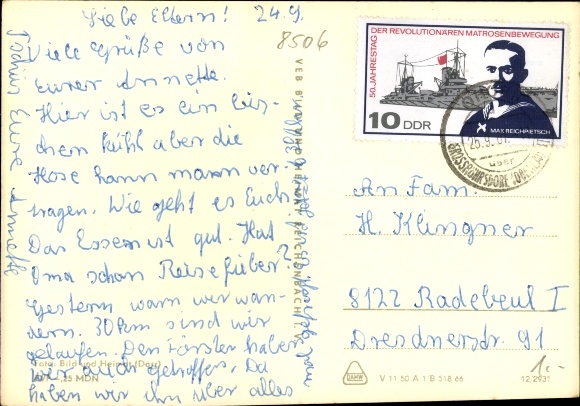 Liebe Eltern! 24.9.
Viele Grüße von
Eurer Annette.
Hier ist es ein bis-
chen kühl aber die
Hose kann mann ver-
tragen. Wie geht es Euch?
Das Essen ist gut. Hat
Oma schon Reisefieber?
Gestern warn wir wan-
dern. 30 km sind wir
gelaufen. Den Förster haben
wir auch getroffen. Da
haben wir ihn über alles
Eure Annette
8506
VEB BILD UND HEIMAT REICHENBACH I. V.
Foto: Bild und Heimat
MDN
50. JAHRESTAG DER REVOLUTIONÄREN MATROSENBEWEGUNG
10 DDR
MAX REICHPIETSCH
über
GROSSRÖHRSDORF
An Fam.
H. Klingner
8122 Radebeul I
Dresdnerstr. 91
1.-
V 11 50 A 1 B 518 66
12 2931